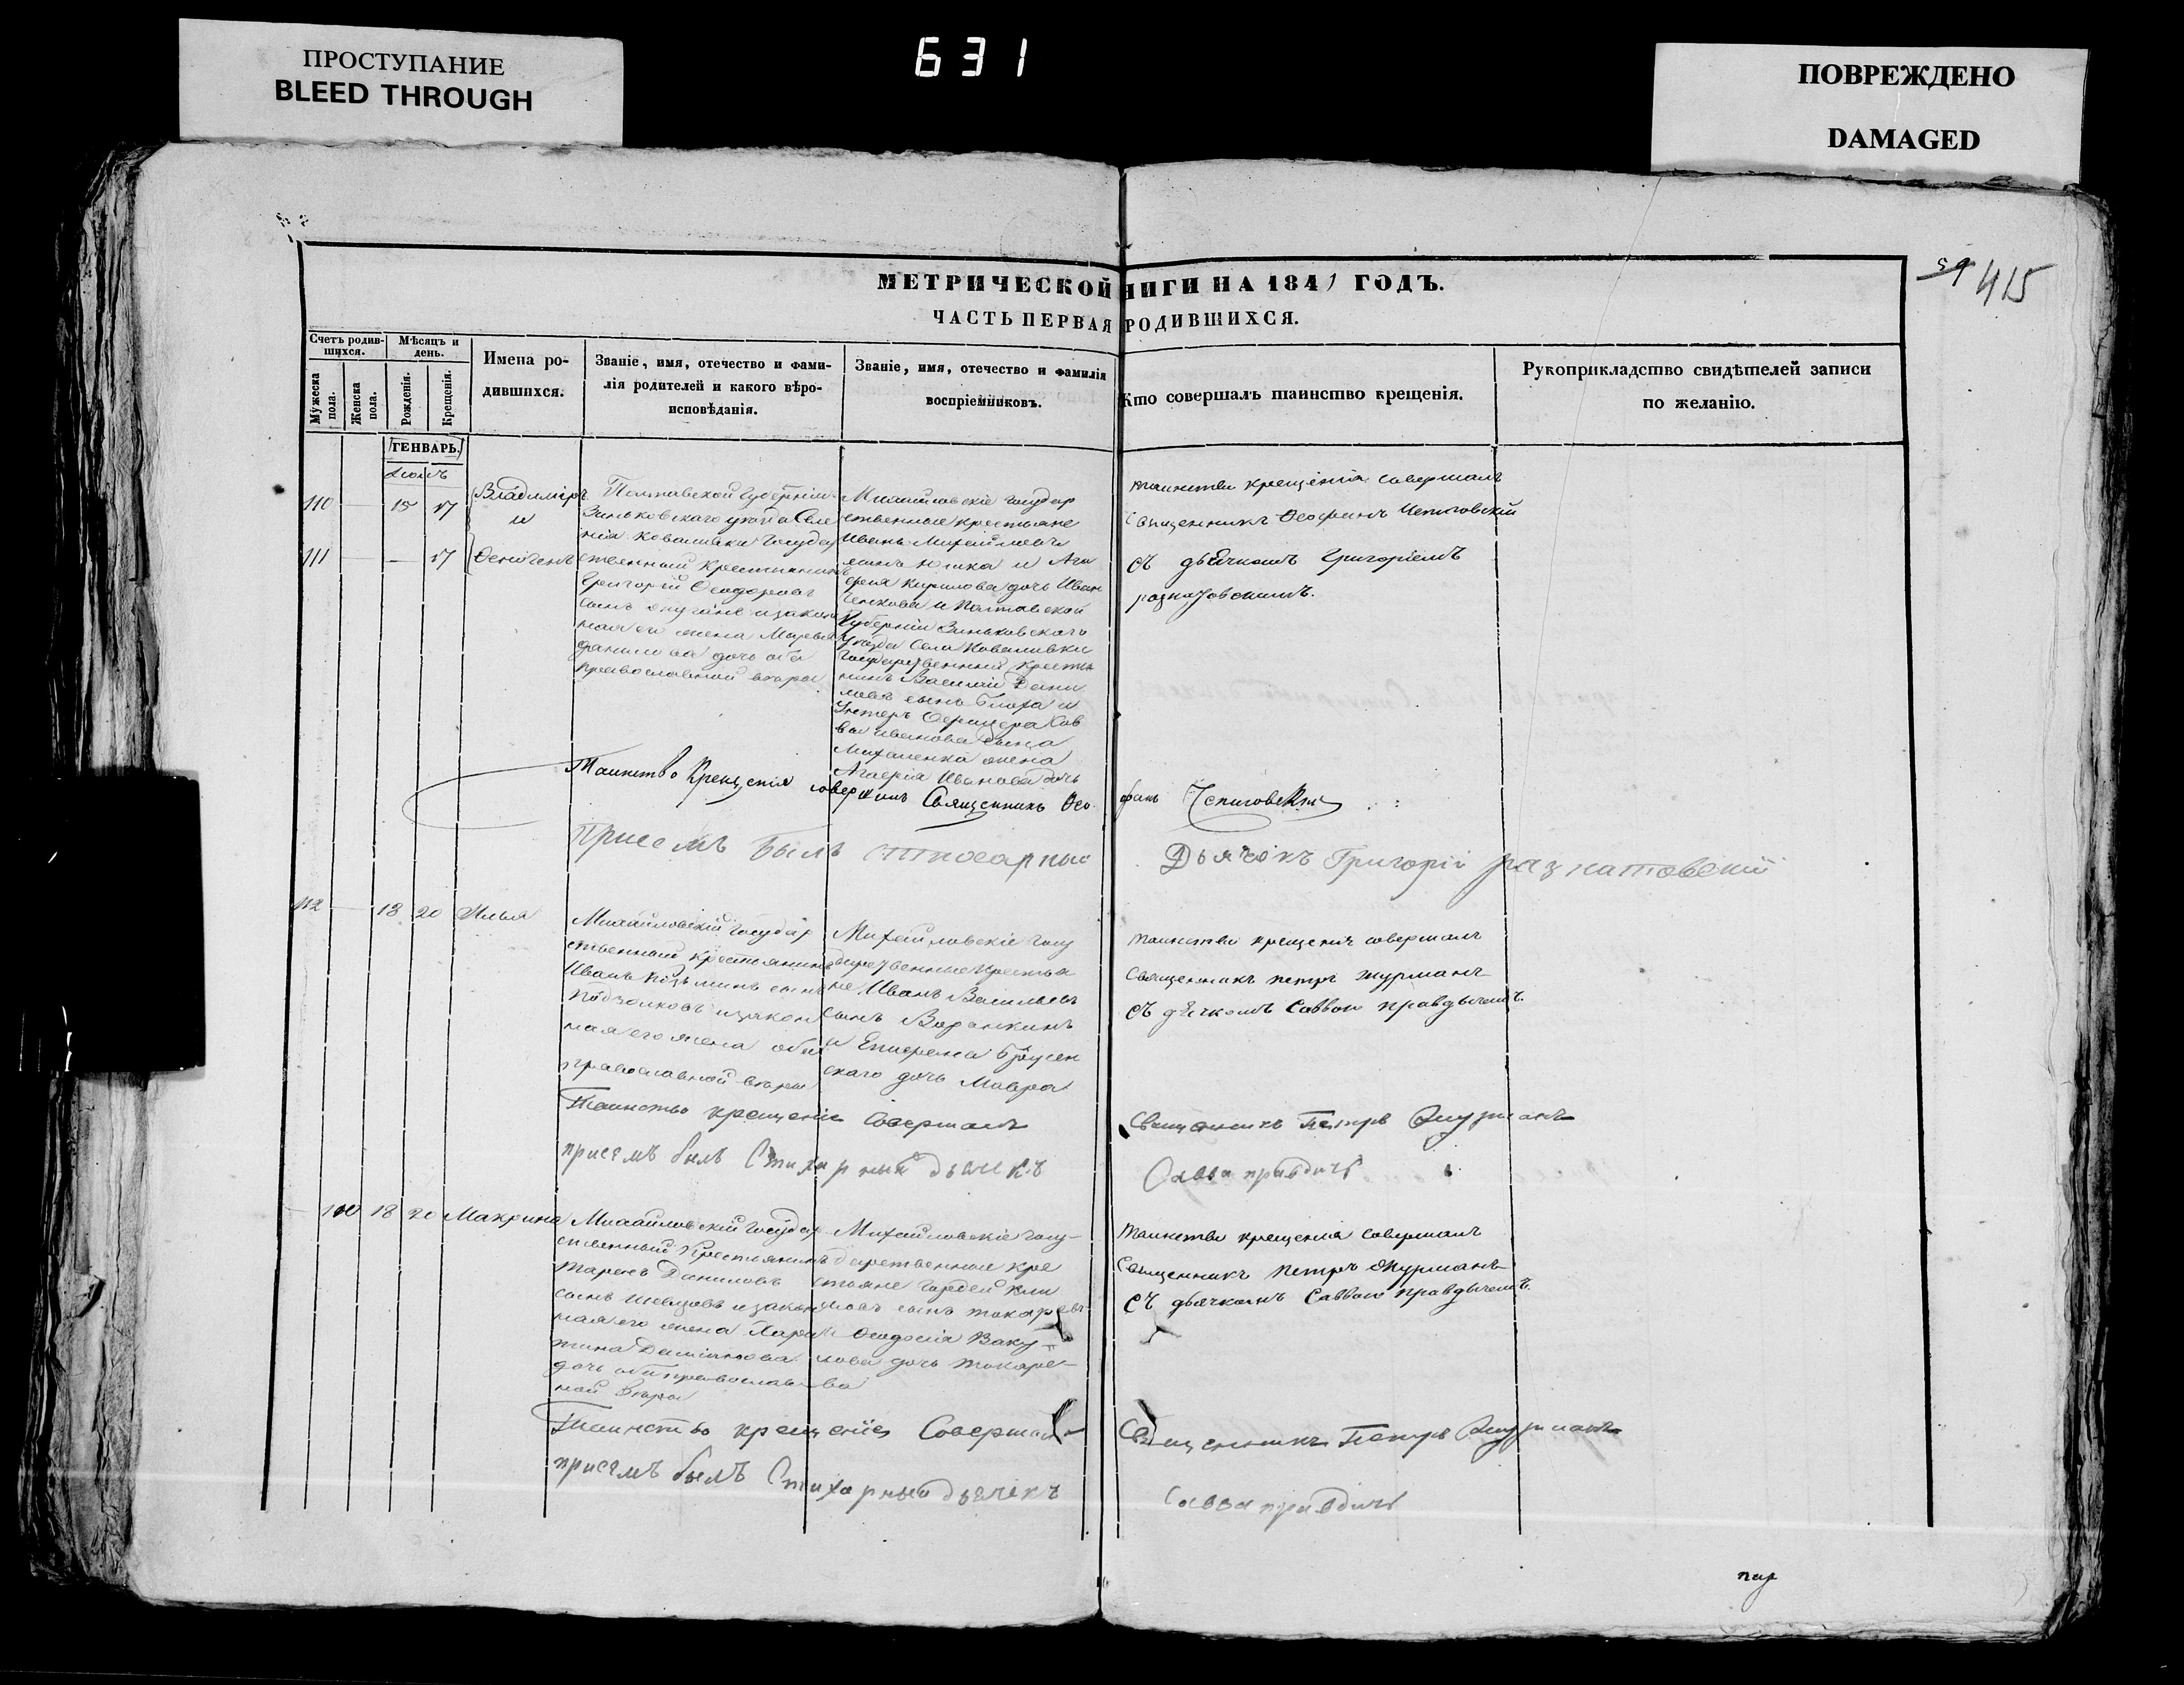 ПРОСТУПАНИЕ
BLEED THROUGH
631
ПОВРЕЖДЕНО
DAMAGED
59 415
МЕТРИЧЕСКОЙ НИГИ НА 1841 ГОДЪ.
ЧАСТЬ ПЕРВАЯ РОДИВШИХСЯ.
Счетъ родив-
шихся.
Мужеска пола.
Женска пола.
Мѣсяцъ и день.
Рожденія.
Крещенія.
Имена ро-
дившихся.
Званіе, имя, отечество и фами-
лія родителей и какого вѣро-
исповѣданія.
Званіе, имя, отечество и фамилія
воспріемниковъ.
Кто совершалъ таинство крещенія.
Рукоприкладство свидѣтелей записи
по желанію.
ГЕНВАРЬ.
110 15 17
Владиміръ
и
111 — 17
Полтавской Губерніи
Зиньковскаго уезда Селе
нія Ковалевки Государ
ственный крестьянинъ
Григорій Ѳеодоровъ
сынъ изакон
ная его жена Марья
дочь оба
православной веры
Михайловскіе государ
ственные крестьяне
Иванъ Михайловъ
сынъ Юшка и Ага
фія Кирилова дочь Иван
ченкова и Полтавской
Губерніи Зиньковскаго
уезда Села Ковалевки
Государственный крестья
нинъ Василий Дани
ловъ сынъ и
Унтеръ Офицера Сав
вы Иванова сына
Михаленка жена
Агафія Иванова дочь
таинство крещенія совершалъ
священникъ Ѳеофанъ Чепиговскій
съ дьячкомъ Григоріемъ
разнатовскимъ.
Таинство Крещенія совершилъ Священникъ Ѳео-
фанъ Чепиговскій
присемъ былъ стихарный
Дьячокъ Григорій разнатовскій
112 18 20 Илья
Михайловскій государ
ственный крестьянинъ
Иванъ сынъ
изакон
ная его жена оба
православной веры
Михайловскіе госу
дарственные крестья
не Иванъ Васильевъ
сынъ Воронкинъ
и
скаго дочь Мавра
таинство крещенія совершалъ
священникъ петръ журманъ
съ дьячкомъ Саввою правдычемъ.
Таинство крещенія Совершалъ
Священникъ Петръ Журманъ
присемъ былъ Стихарный дьячекъ
Савва правдичъ
100 18 20 Макрина
Михайловскій государ
ственный крестьянинъ
Даниловъ
сынъ Шевцовъ изакон
ная его жена Хари
тина Даміанова
дочь оба православ
ной веры
Михайловскіе госу-
дарственные кре
стьяне Гордей Кли
мовъ сынъ токаревъ
и Ѳеодосія Ваку-
лова дочь токаре-
ва
таинство крещенія совершалъ
Священникъ петръ Журманъ
съ дьячкомъ Саввою правдычемъ.
Таинство крещенія Совершалъ
Священникъ Петръ Журманъ
присемъ былъ Стихарный дьячекъ
Савва правдичъ